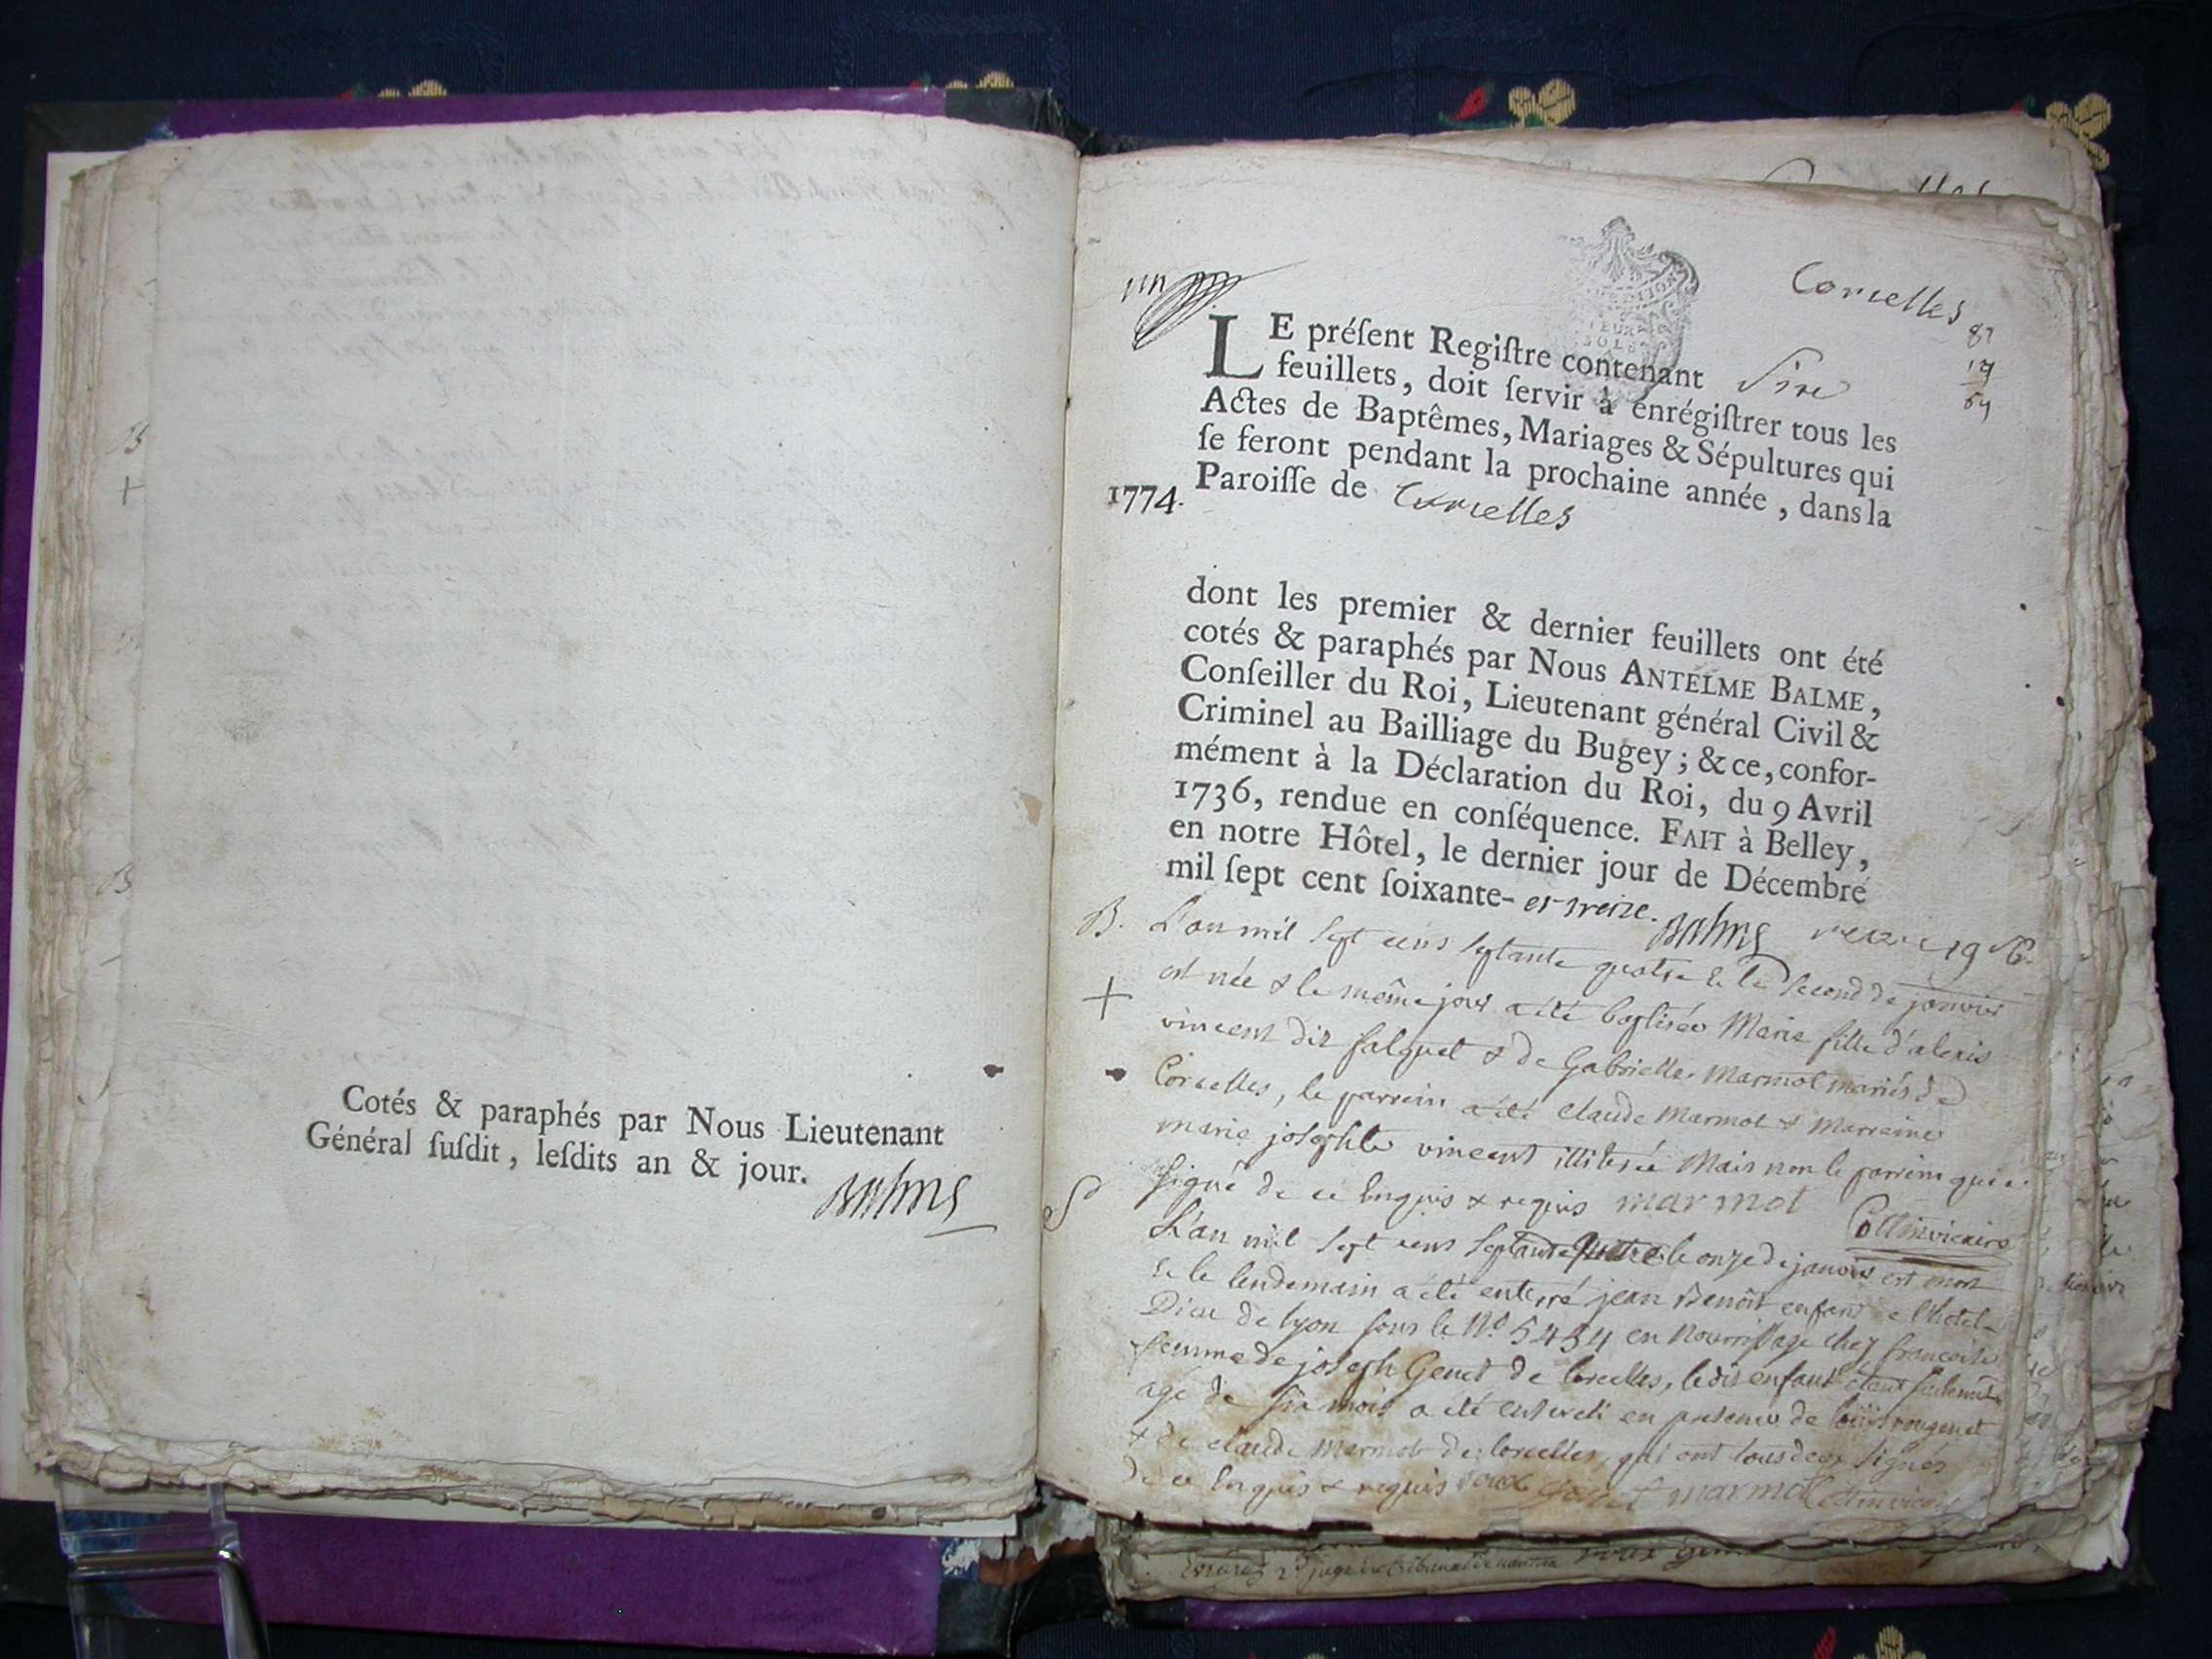 Cotés & paraphés par Nous Lieutenant
Général ſuſdit, leſdits an & jour.
Balme
un
Corcelles
LE préſent Regiſtre contenant Six
feuillets, doit ſervir à enrégiſtrer tous les
Actes de Baptêmes, Mariages & Sépultures qui
ſe feront pendant la prochaine année, dans la
1774. Paroiſſe de Corcelles
dont les premier & dernier feuillets ont été
cotés & paraphés par Nous ANTELME BALME,
Conſeiller du Roi, Lieutenant général Civil &
Criminel au Bailliage du Bugey; & ce, confor-
mément à la Déclaration du Roi, du 9 Avril
1736, rendue en conſéquence. FAIT à Belley,
en notre Hôtel, le dernier jour de Décembre
mil ſept cent ſoixante- et treize. Balme
B. L'an mil sept cens septante quatre & le second de janvier
est née & le même jour a été baptisée Marie fille d'alexis
vincent dit falquet & de Gabrielle Marmot mariés de
Corcelles, le parrein a été claude Marmot & Marreine
marie josephte vincent illiterée Mais non le parrein qui a
signé de ce Enquis & requis marmot Collin vicaire
S L'an mil sept cens septante quatre le onze de janvier est mort
& le lendemain a été enterré jean Benoît enfant de l'hotel-
Dieu de lyon sous le N.o 5454 en Nourrissage chez francoise
femme de joseph Genet de Corcelles, le dit enfant étant seulement
agé de six mois a été enseveli en présence de louis rougenet
& de claude Marmot de Corcelles, qui ont tous deux signés
de ce Enquis & requis marmot Collin vicaire